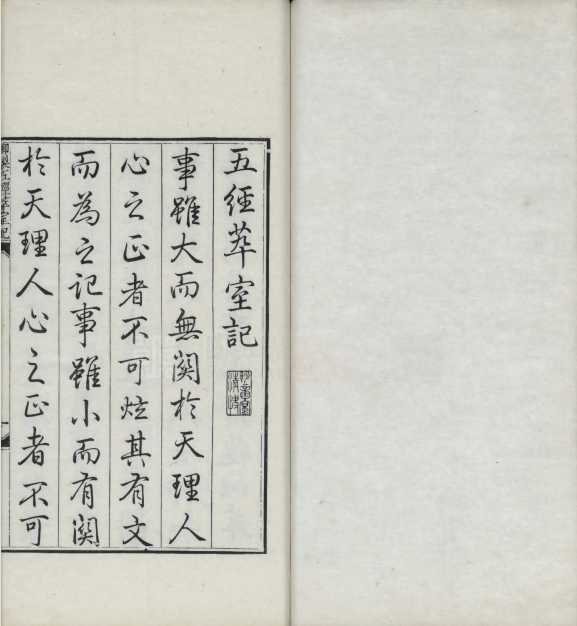 五經萃室記
事雖大而無関於天理人
心之正者不可炫其有文
而為之記事雖小而有関
於天理人心之正者不可